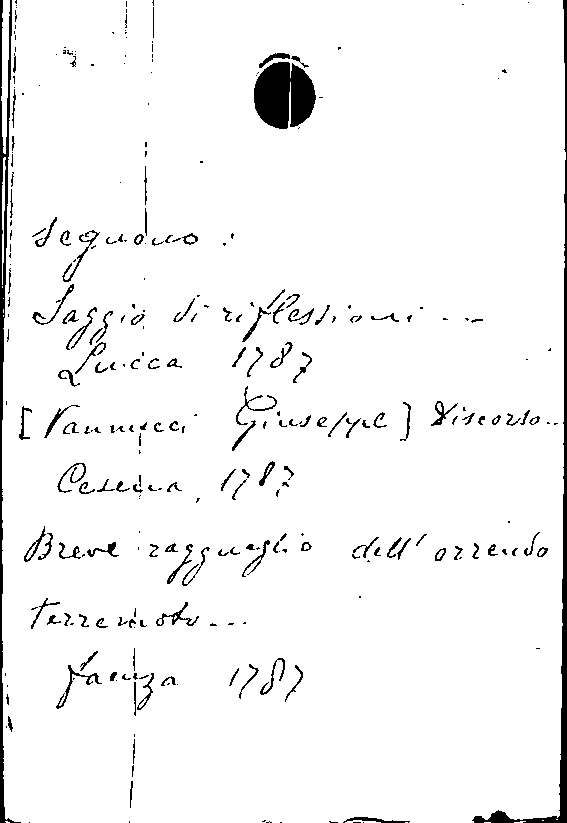 seguono :
Saggio di riflessioni ...
Lucca 1787
[Vannucci Giuseppe] Discorso...
Cesena, 1787
Breve ragguaglio dell'orrendo
terremoto...
Faenza 1787